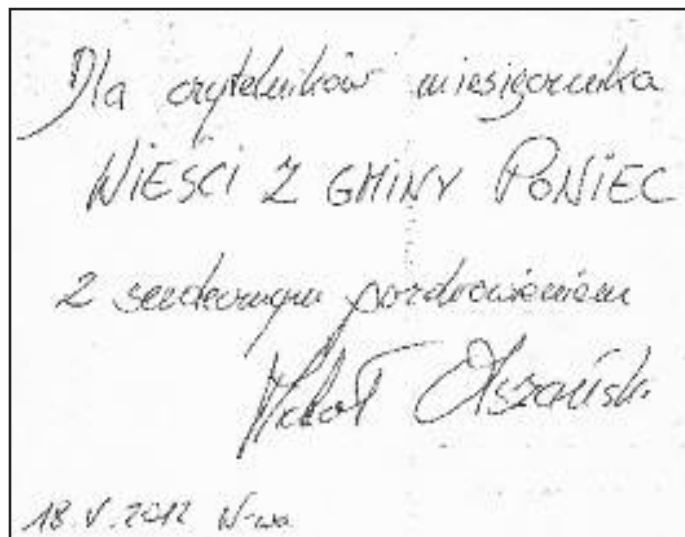 Dla czytelników miesięcznika
WIEŚCI Z GMINY PONIEC
z serdecznym pozdrowieniem
Michał Olszański
18.V.2012 W-wa